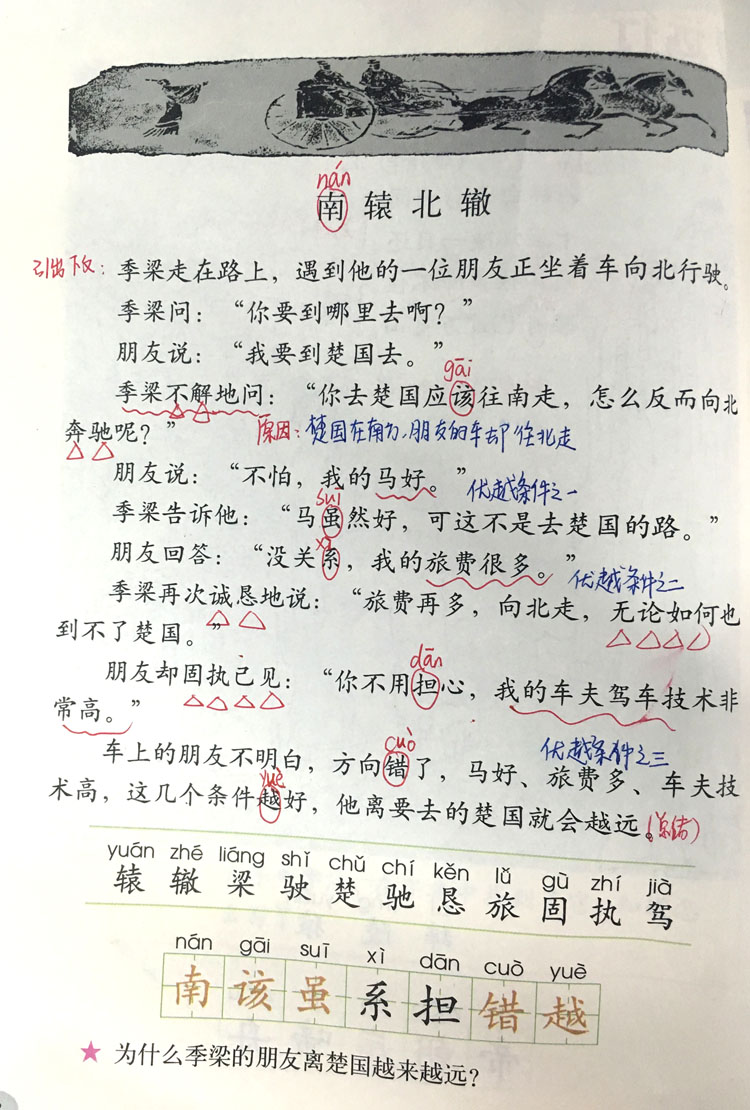 nán
南辕北辙
引出下文：季梁走在路上，遇到他的一位朋友正坐着车向北行驶。
季梁问：“你要到哪里去啊？”
朋友说：“我要到楚国去。”
gāi
季梁不解地问：“你去楚国应该往南走，怎么反而向北
奔驰呢？”原因：楚国在南方，朋友的车却往北走
朋友说：“不怕，我的马好。”优越条件之一
suī
季梁告诉他：“马虽然好，可这不是去楚国的路。”
xì
朋友回答：“没关系，我的旅费很多。”优越条件之二
季梁再次诚恳地说：“旅费再多，向北走，无论如何也
到不了楚国。”
dān
朋友却固执己见：“你不用担心，我的车夫驾车技术非
常高。”
优越条件之三
cuò
车上的朋友不明白，方向错了，马好、旅费多、车夫技
yuè
术高，这几个条件越好，他离要去的楚国就会越远。（总结）
yuán zhé liáng shǐ chǔ chí kěn lǚ gù zhí jià
辕 辙 梁 驶 楚 驰 恳 旅 固 执 驾
nán gāi suī xì dān cuò yuè
南 该 虽 系 担 错 越
★ 为什么季梁的朋友离楚国越来越远？